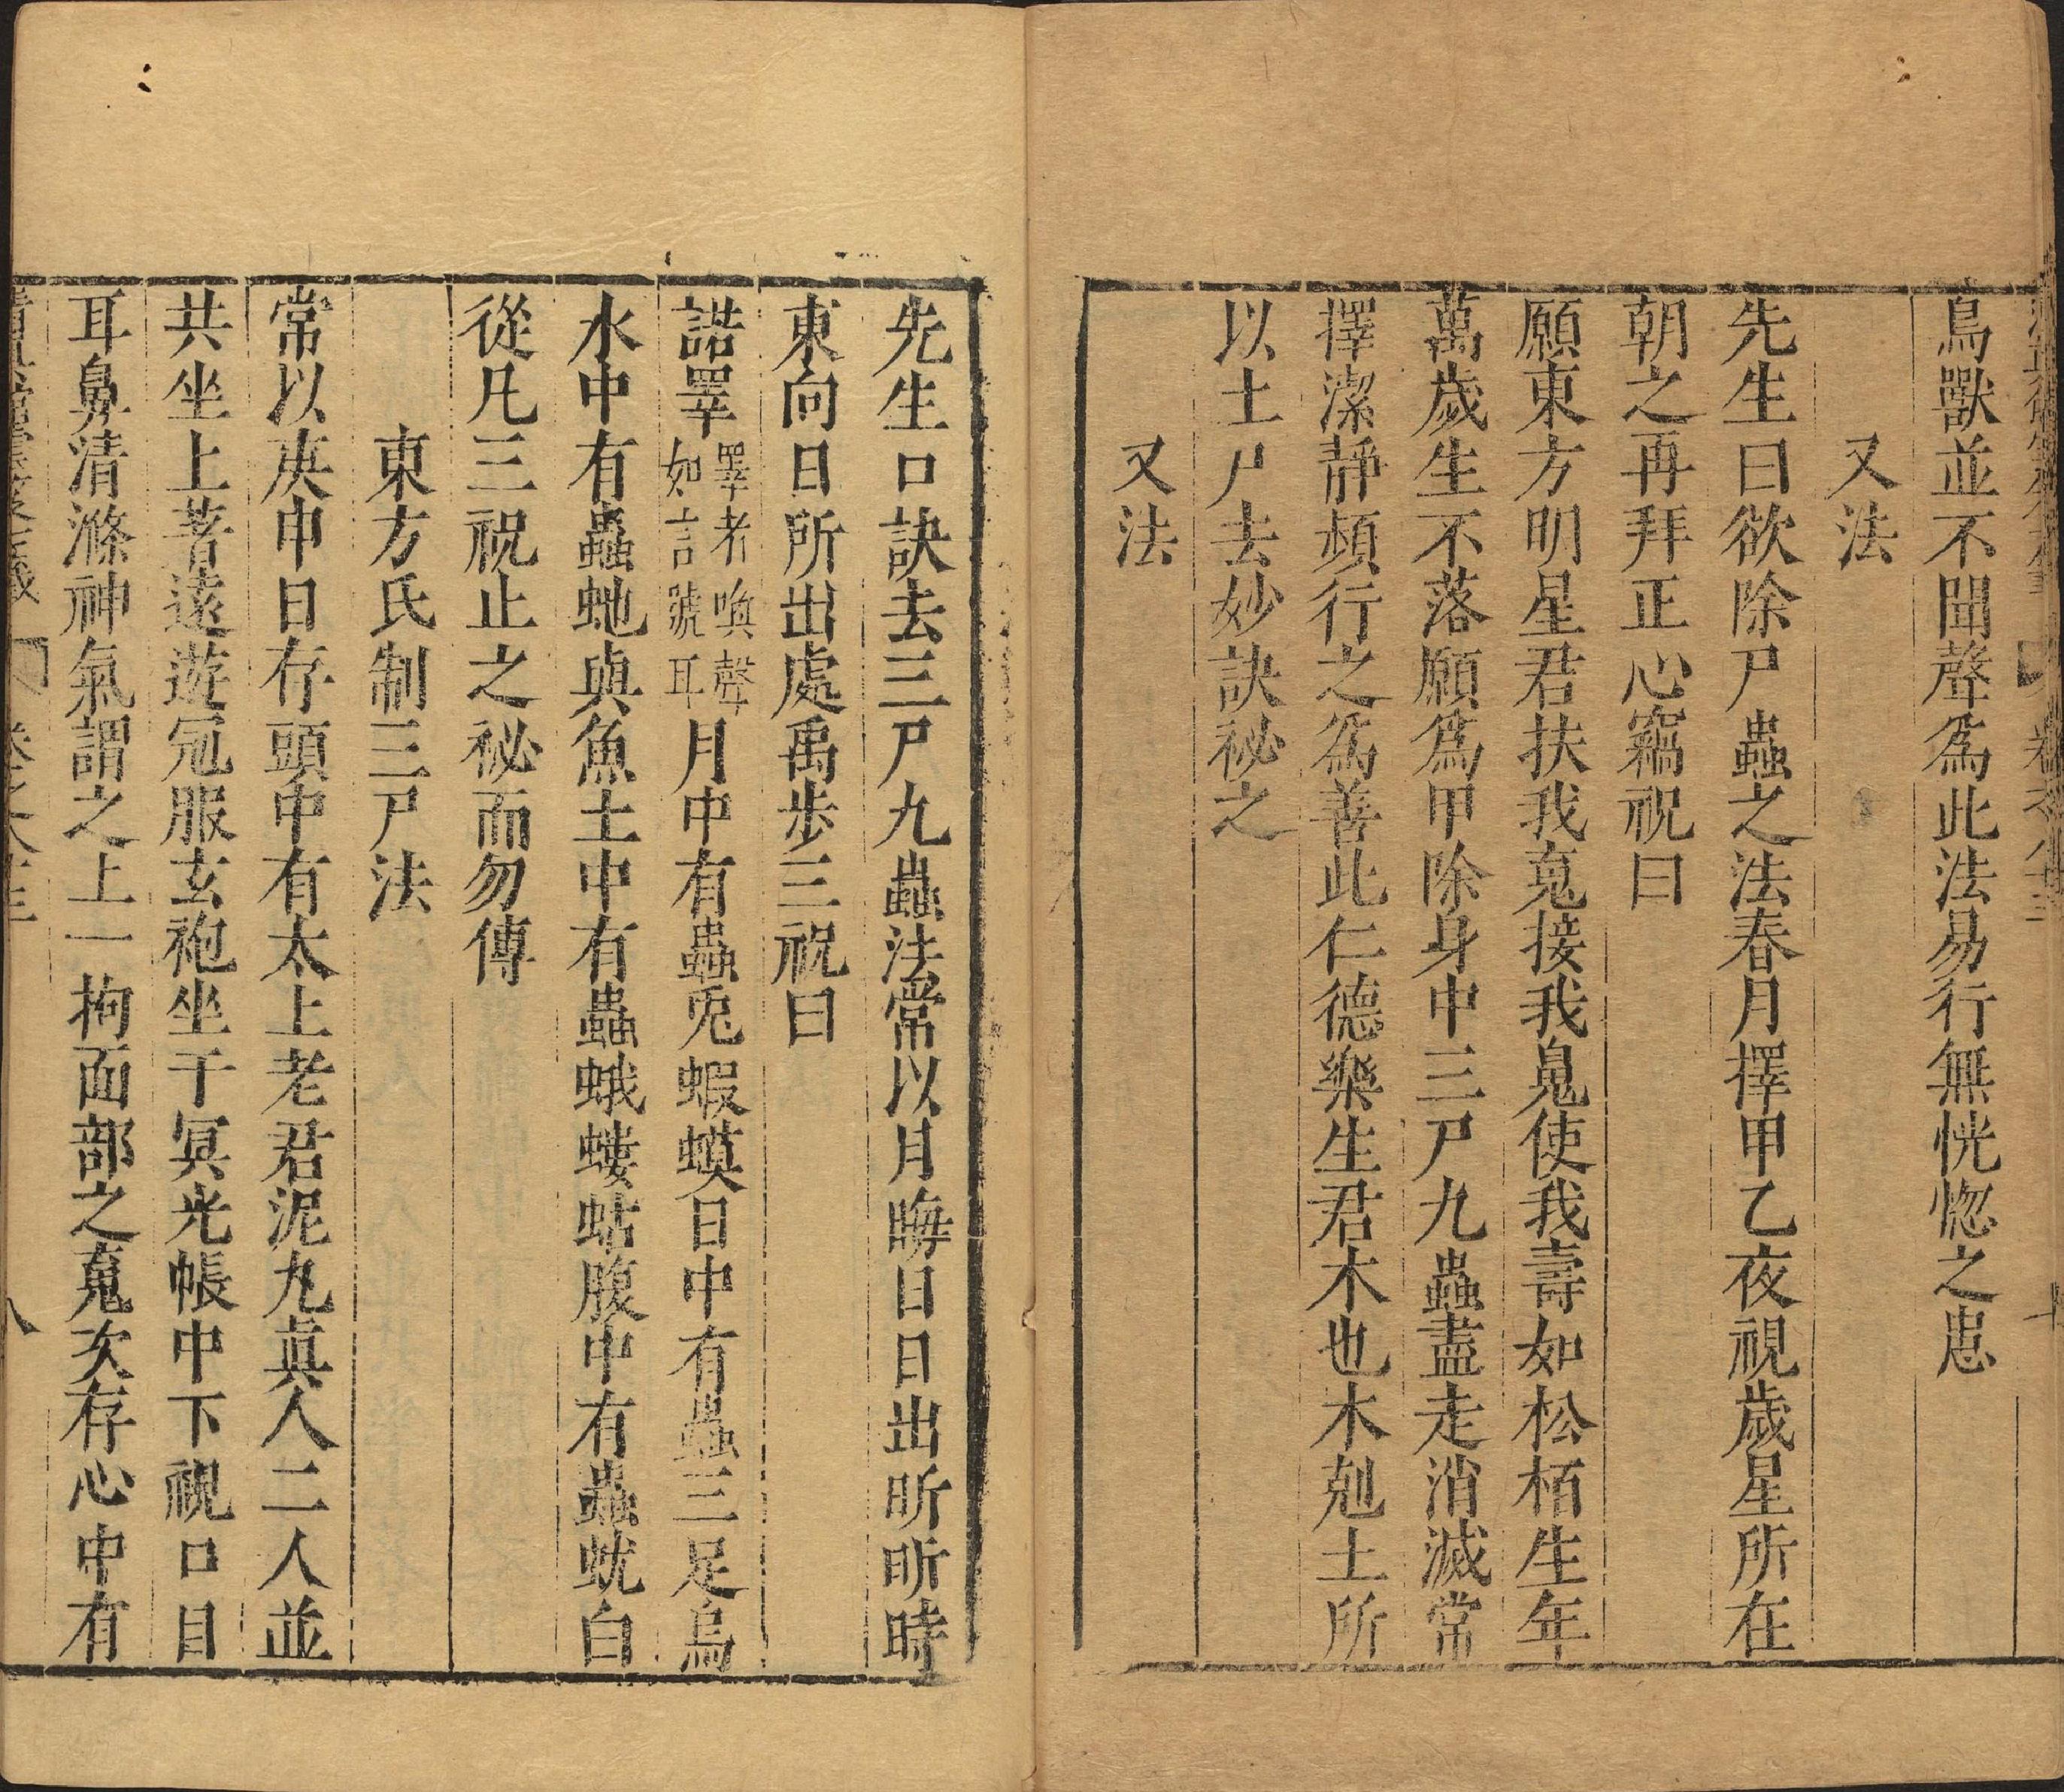 鳥獸並不聞聲爲此法易行無恍惚之患
又法
先生曰欲除尸蟲之法春月擇甲乙夜視歲星所在
朝之再拜正心竊祝曰
願東方明星君扶我䰟接我䰟使我壽如松栢生年
萬歲生不落願爲甲除身中三尸九蟲盡走消滅常
擇潔靜頻行之爲善此仁德樂生君木也木剋土所
以土尸去妙訣秘之
又法
先生口訣去三尸九蟲法常以月晦日日出昕昕時
東向日所出處禹步三祝曰
諾睪睪者喚聲如言號耳月中有蟲兎蝦蟆日中有蟲三足烏
水中有蟲虵與魚土中有蟲蛾螻蛄腹中有蟲蚘白
從凡三祝止之秘而勿傳
東方氏制三尸法
常以庚申日存頭中有太上老君泥丸眞人二人並
共坐上著遠遊冠服玄袍坐于冥光帳中下視口目
耳鼻清滌神氣謂之上一拘面部之䰟次存心中有